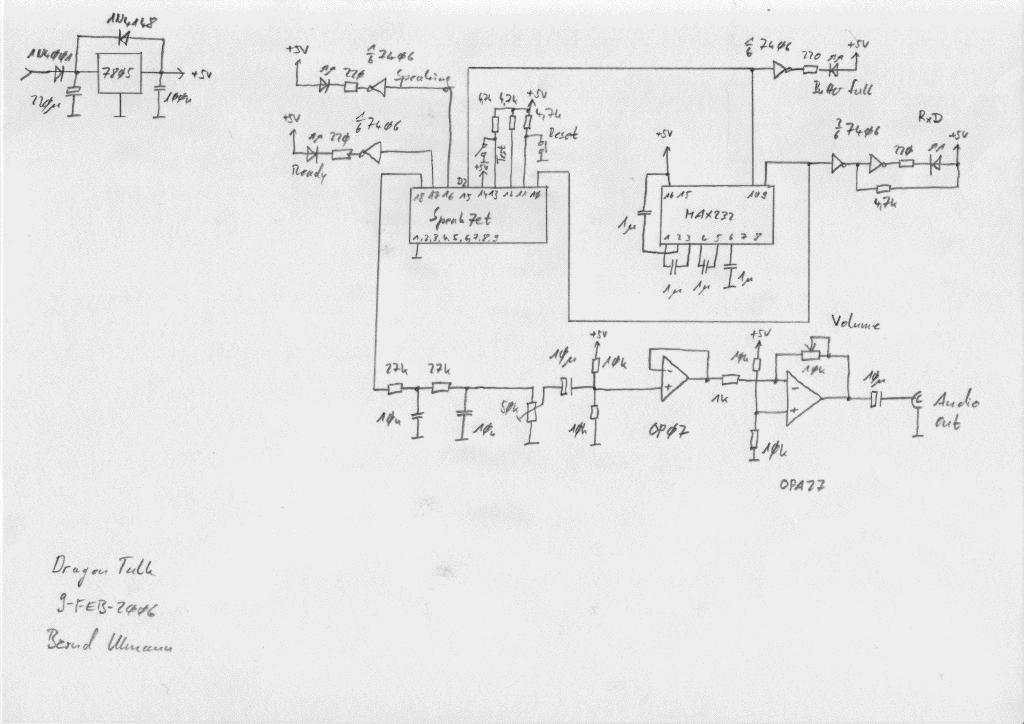 1N4148
1N4001
7805
+5V
220µ
100n
+5V
1/6 7406
220
Speaking
+5V
1/6 7406
220
Ready
4,7k 4,7k +5V
4,7k
Reset
Test
+5V
18 17 16 15 14 13 12 11 10
SpeakJet
1,2,3,4,5,6,7,8,9
+5V
1µ
16 15 10 9
MAX232
1 2 3 4 5 6 7 8
1µ 1µ 1µ
1/6 7406
220
+5V
Buffer full
2/6 7406
RxD
220
+5V
4,7k
27k 27k
10n 10n
50k
10µ
+5V
10k
10k
OP07
1k
+5V
10k
10k
Volume
10k
10µ
Audio
out
OPA27
Dragon Talk
9-FEB-2006
Bernd Ulmann